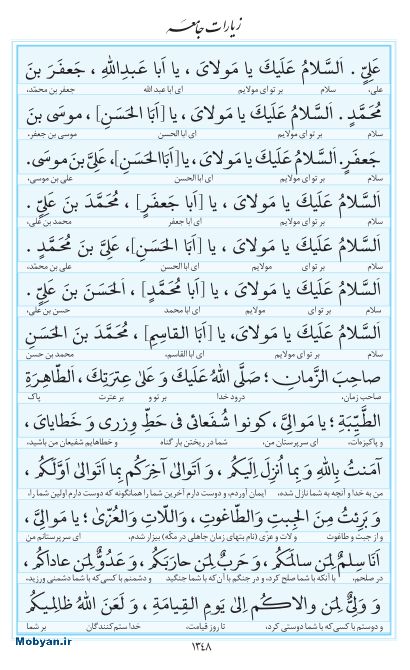 زیارات جامعه
عَلِیٍّ . اَلسَّلامُ عَلَیکَ یا مَولایَ ، یا اَبا عَبدِاللهِ ، جَعفَرَ بنَ
علی، سلام بر تو ای مولایم ای ابا عبد الله جعفر بن محمّد،
مُحَمَّدٍ . اَلسَّلامُ عَلَیکَ یا مَولایَ ، یا [اَبَا الحَسَنِ] ، موسَی بنَ
سلام بر تو ای مولایم ای ابا الحسن موسی بن جعفر،
جَعفَرٍ. اَلسَّلامُ عَلَیکَ یا مَولایَ ، یا[اَبَا الحَسَنِ]، عَلِیَّ بنَ موسَی.
سلام بر تو ای مولایم ای ابا الحسن علی بن موسی،
اَلسَّلامُ عَلَیکَ یا مَولایَ ، یا [اَبا جَعفَرٍ] ، مُحَمَّدَ بنَ عَلِیٍّ .
سلام بر تو ای مولایم ای ابا جعفر محمد بن علی،
اَلسَّلامُ عَلَیکَ یا مَولایَ ، یا [اَبَا الحَسَنِ]، عَلِیَّ بنَ مُحَمَّدٍ .
سلام بر تو ای مولایم ای ابا الحسن علی بن محمد،
اَلسَّلامُ عَلَیکَ یا مَولایَ ، یا [اَبا مُحَمَّدٍ] ، اَلحَسَنَ بنَ عَلِیٍّ .
سلام بر تو ای مولایم ای ابا محمد حسن بن علی،
اَلسَّلامُ عَلَیکَ یا مَولایَ، یا [اَبَا القاسِمِ] ، مُحَمَّدَ بنَ الحَسَنِ
سلام بر تو ای مولایم ای ابا القاسم، محمد بن حسن
صاحِبَ الزَّمانِ ؛ صَلَّی اللهُ عَلَیکَ وَ عَلی عِترَتِکَ ، اَلطّاهِرَةِ
صاحب زمان، درود خدا بر تو و بر عترت پاک
الطَّیِّبَةِ ؛ یا مَوالِیَّ، کونوا شُفَعائی فی حَطِّ وِزری وَ خَطایایَ ،
و پاکیزه‌ات، ای سرپرستان من، شما در ریختن بار گناه و خطاهایم شفیعان من باشید،
آمَنتُ بِاللهِ وَ بِما اُنزِلَ اِلَیکُم ، وَ اَتَوالی آخِرَکُم بِما اَتَوالی اَوَّلَکُم ،
من به خدا و آنچه به شما نازل شده، ایمان آوردم، و دوست دارم آخرین شما را همانگونه که دوست دارم اولین شما را،
وَ بَرِئتُ مِنَ الجِبتِ وَ الطّاغوتِ ، وَ اللّاتِ وَ العُزّی؛ یا مَوالِیَّ ،
و از جبت و طاغوت و لات و عزی (نام بتهای زمان جاهلی در مکّه) بیزار شدم، ای سرپرستانم من
اَنَا سِلمٌ لِمَن سالَمَکُم ، وَ حَربٌ لِمَن حارَبَکُم ، وَ عَدُوٌّ لِمَن عاداکُم ،
در صلحم، با آنکه با شما صلح کرد، و در جنگم با آن که با شما جنگید و دشمنم با کسی که با شما دشمنی ورزید،
وَ وَلِیٌّ لِمَن والاکُم اِلی یَومِ القِیامَةِ ، وَ لَعَنَ اللهُ ظالِمیکُم
و دوستم با کسی که با شما دوستی کرد، تا روز قیامت، خدا ستم کنندگان بر شما
۱۳۴۸
Mobyan.ir